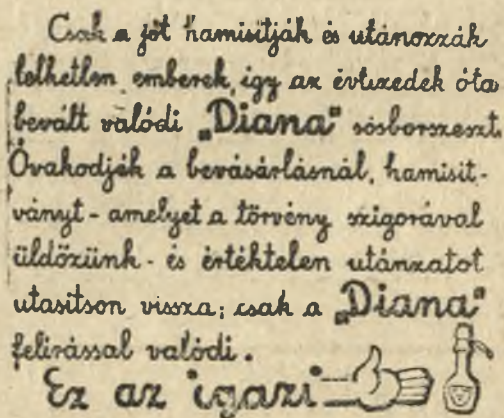 Csak a jót hamisitják és utánozzák
lelhetlen emberek, igy az évtizedek óta
bevált valódi „Diana" sósborszeszt.
Óvakodjék a bevásárlásnál, hamisit-
ványt - amelyet a törvény szigorával
üldözünk - és értéktelen utánzatot
utasitson vissza; csak a „Diana"
felirással valódi.
Ez az igazi